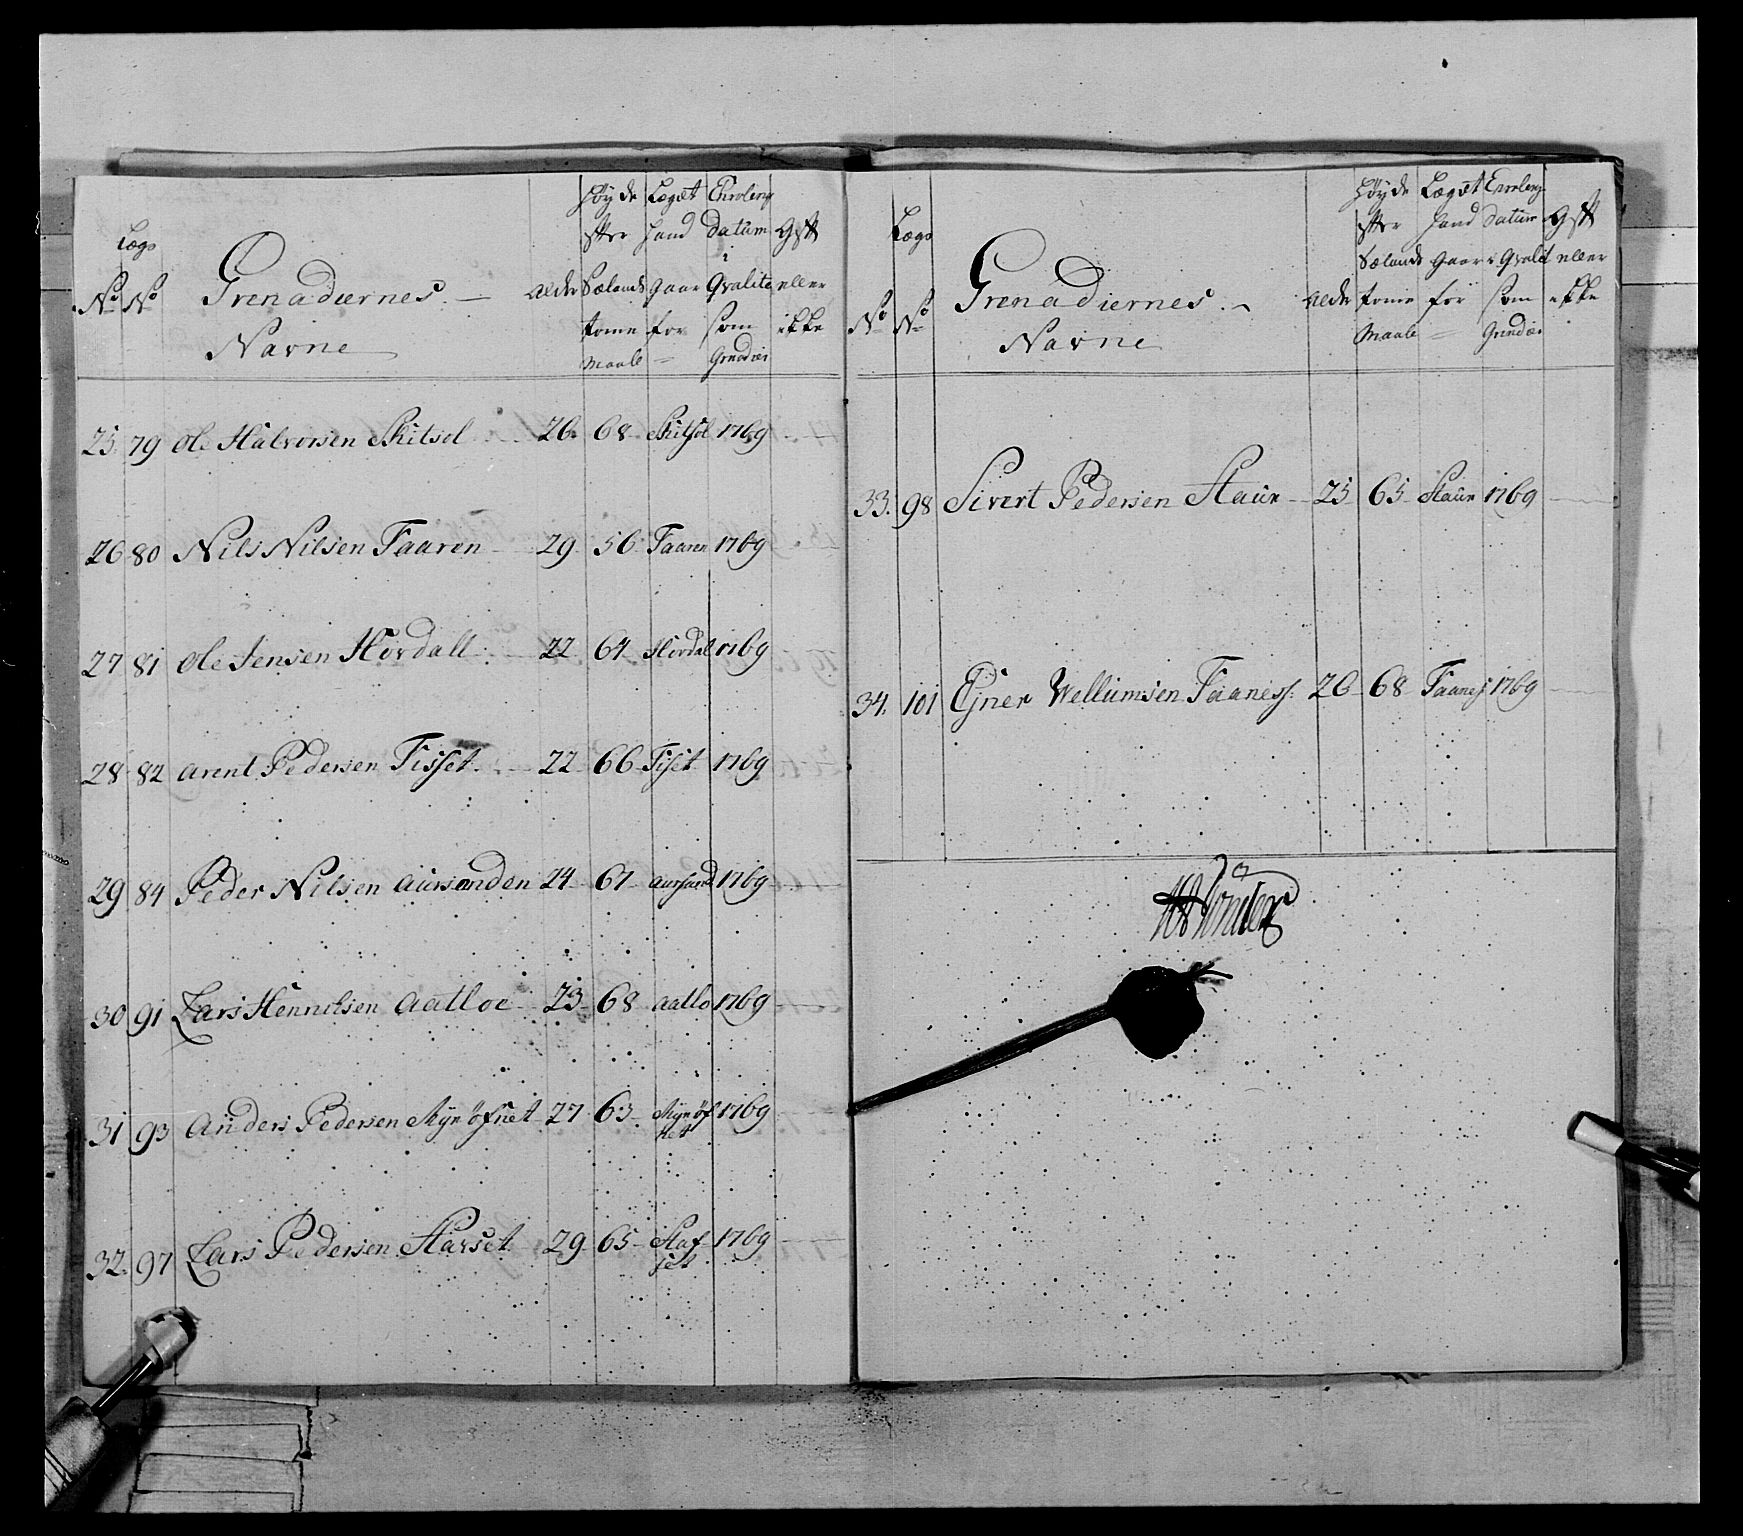 No
Lægs No
Grenadiernes Navne
Alder
Høyde efter Sælands tomme Maale
Læget hand Gaar for
Enrolering datum i Qvalite som Grenadier
Gift eller ikke
25. 79 Ole Halvorsen Skitsol 26. 68 Skitsol 1769
26 80 Nils Nilsen Faaren 29 56 Faaren 1769
27 81 Ole Jensen Hordall 22 64 Hordal 1769
28 82 Arent Pedersen Fisset 22 66 Fiset 1769
29 84 Peder Nilsen Aursonden 24 67 Aursund 1769
30 91 Lars Henrichsen Aatloe 23 68 Aatlo 1769
31 93 Anders Pedersen Myrøfset 27 63 Myrøf
set 1769
32. 97 Lars Pedersen Starset 29 65 Staf
set 1769
No
Lægs No
Grenadiernes Navne
Alder
Høyde efter Sælands tomme Maale
Læget hand Gaar for
Enrolering datum i Qvalit som Grenadier
Gift eller ikke
33. 98 Sivert Pedersen Staur 25 65 Staur 1769
34. 101 Ejner Wellumsen Faaness 26 68 Faaness 1769